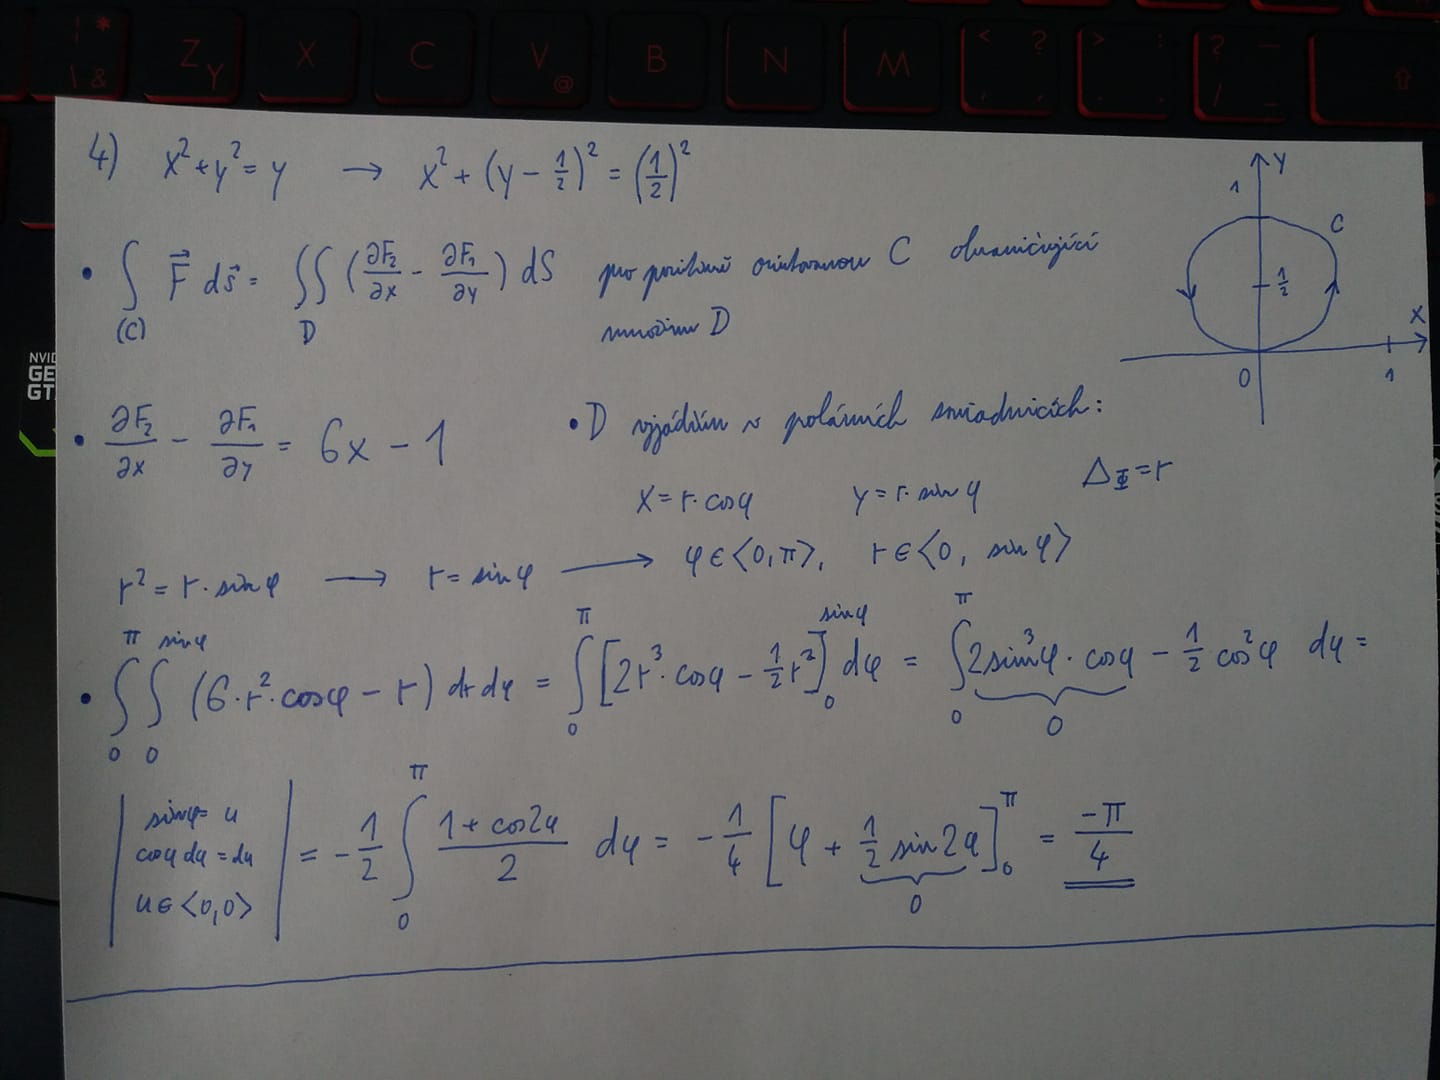 Z Y X C V @ B N M < ? > : ? — /
4) x² + y² = y → x² + (y - 1/2)² = (1/2)²
• ∫_(C) F⃗ ds⃗ = ∬_D (∂F₂/∂x - ∂F₁/∂y) dS pro pozitivně orientovanou C ohraničující
množinu D
y
1
C
1/2
x
0
1
NVID
GE
GT
• ∂F₂/∂x - ∂F₁/∂y = 6x - 1
• D vyjádřím v polárních souřadnicích:
x = r·cosφ y = r·sinφ Δ_Φ = r
r² = r·sinφ → r = sinφ → φ∈<0,π>, r∈<0, sinφ>
• ∫₀^π ∫₀^sinφ (6·r²·cosφ - r) dr dφ = ∫₀^π [2r³·cosφ - 1/2 r²]₀^sinφ dφ = ∫₀^π 2sin³φ·cosφ - 1/2 cos²φ dφ =
0
| sinφ = u
cosφ dφ = du
u∈<0,0> | = -1/2 ∫₀^π (1 + cos2φ)/2 dφ = -1/4 [φ + 1/2 sin2φ]₀^π = -π/4
0